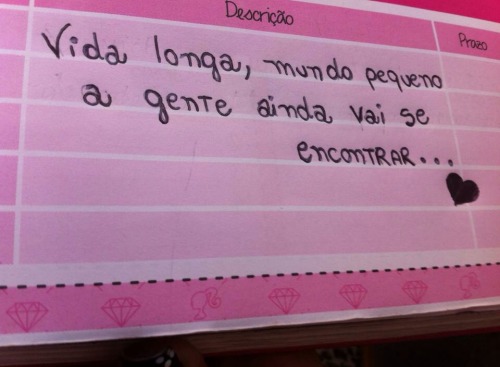 Descrição
Prazo
Vida longa, mundo pequeno
a gente ainda vai se
encontrar...